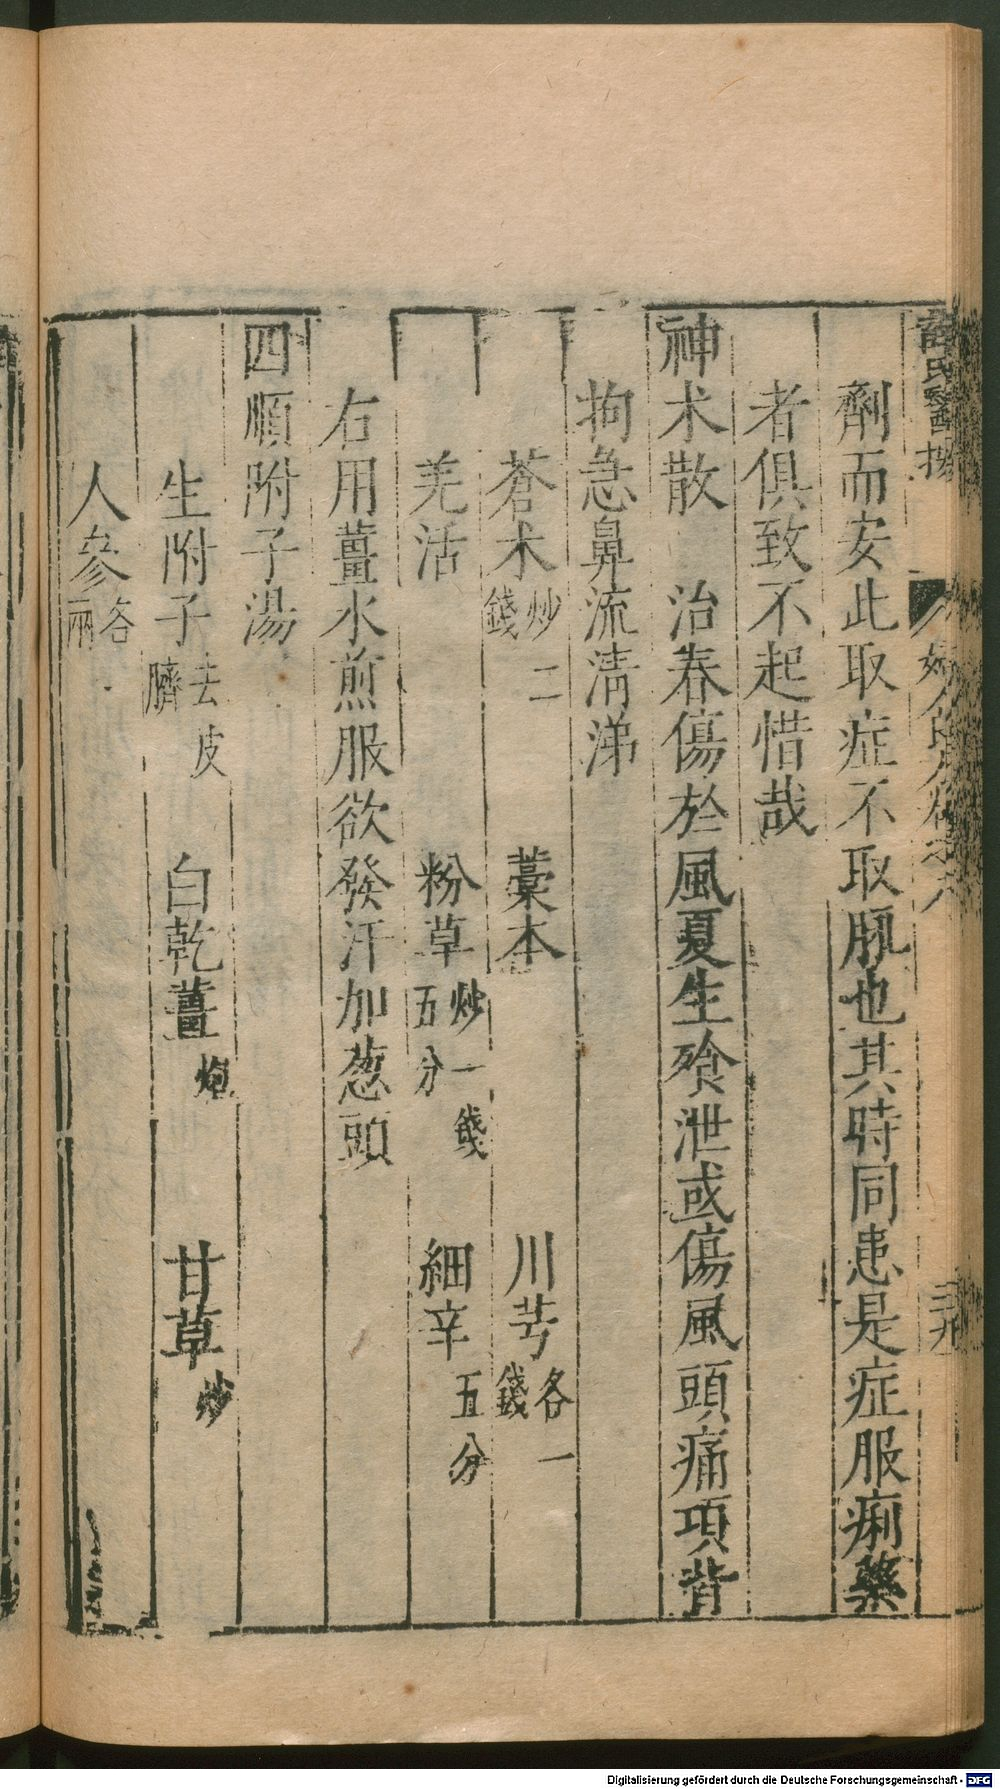 薛氏醫按 婦人良方卷之八 三九
劑而安此取症不取脈也其時同患是症服痢藥
者俱致不起惜哉
神朮散 治春傷於風夏生飱泄或傷風頭痛項背
拘急鼻流清涕
蒼朮炒二錢 藁本 川芎各一錢
羌活 粉草炒一錢五分 細辛五分
右用薑水煎服欲發汗加葱頭
四順附子湯
生附子去皮臍 白乾薑炮 甘草炒
人參各兩
Digitalisierung gefördert durch die Deutsche Forschungsgemeinschaft - DFG